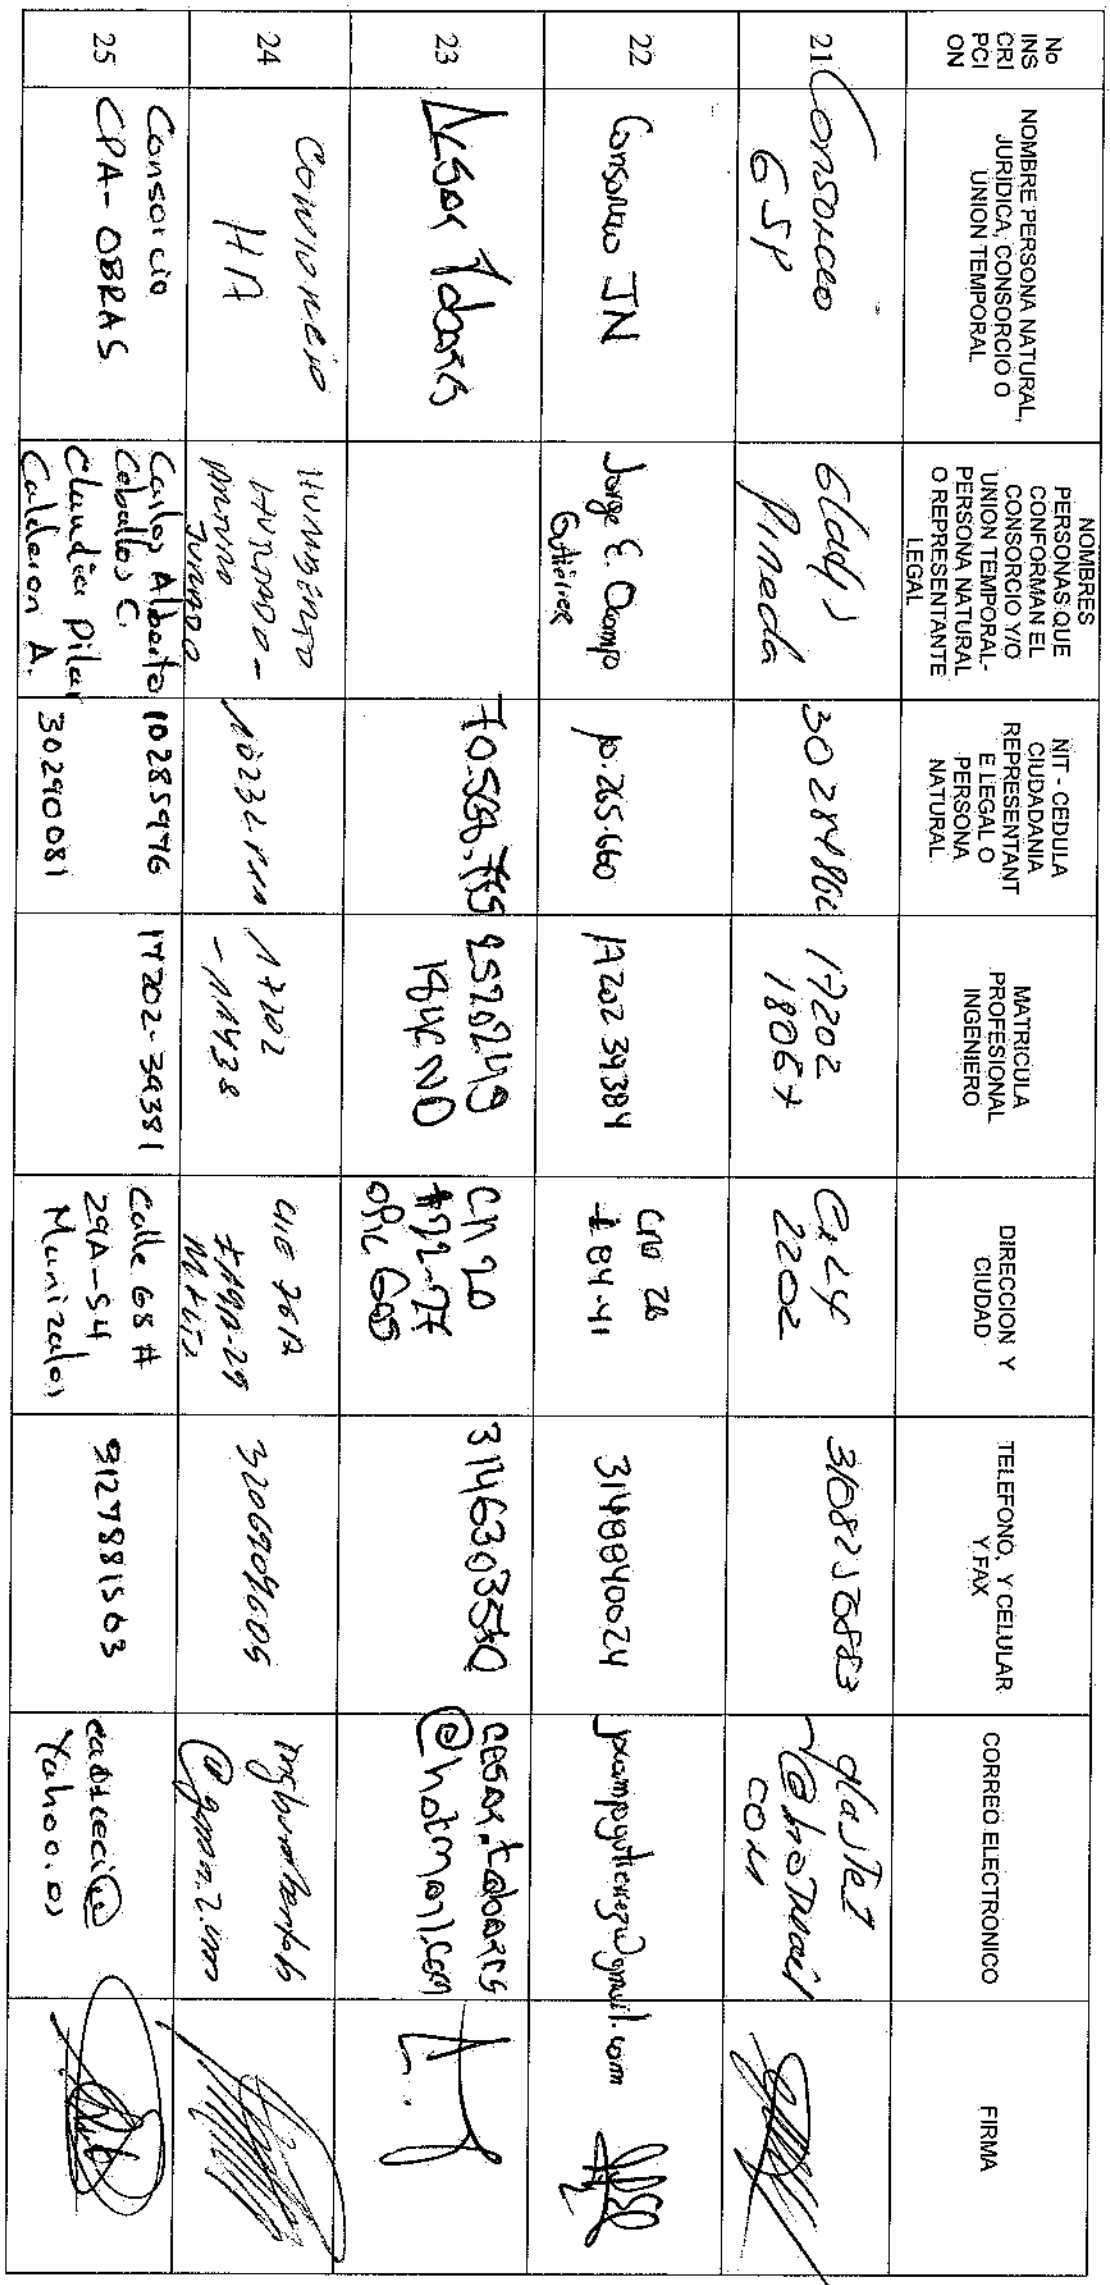 No
INS
CRI
PCI
ON
NOMBRE PERSONA NATURAL,
JURIDICA, CONSORCIO O
UNION TEMPORAL
NOMBRES
PERSONAS QUE
CONFORMAN EL
CONSORCIO Y/O
UNION TEMPORAL-
PERSONA NATURAL
O REPRESENTANTE
LEGAL
NIT - CEDULA
CIUDADANIA
REPRESENTANT
E LEGAL O
PERSONA
NATURAL
MATRICULA
PROFESIONAL
INGENIERO
DIRECCION Y
CIUDAD
TELEFONO, Y CELULAR
Y FAX
CORREO ELECTRONICO
FIRMA
21
Consorcio
GSP
Gladys
Pineda
17202
18067
22
Consorcio JN
Jorge E. Ocampo
Gutiérrez
10.265.660
17202 39384
Cra 26
# 84-41
3148840024
jocampogutierrez@gmail.com
23
Cesar Tabares
25202249
184CND
Cra 20
#22-27
ofic 605
3146303530
cesar.tabares
@hotmail.com
24
Consorcio
HA
HUMBERTO
HURTADO -
ARTURO
JURADO
17202
-11438
3206909605
25
Consorcio
CPA- OBRAS
Carlos Alberto
Ceballos C.
Claudia Pilar
Calderon A.
10285976
30290081
17202-39381
Calle 68 #
29A-54
Manizales
3127881563